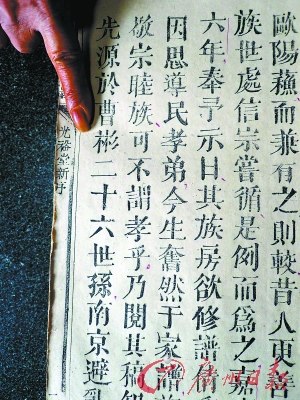 歐陽蘓而兼有之則較昔人更善
族世處信宗嘗循是例而爲之嘉
六年奉予示日其族房欲修譜
因思導民孝弟今生奮然于家譜
敬宗睦族可不謂孝乎乃閱其稿
先源於曹彬二十六世孫南京避亂
光裕堂新序
廣州日報